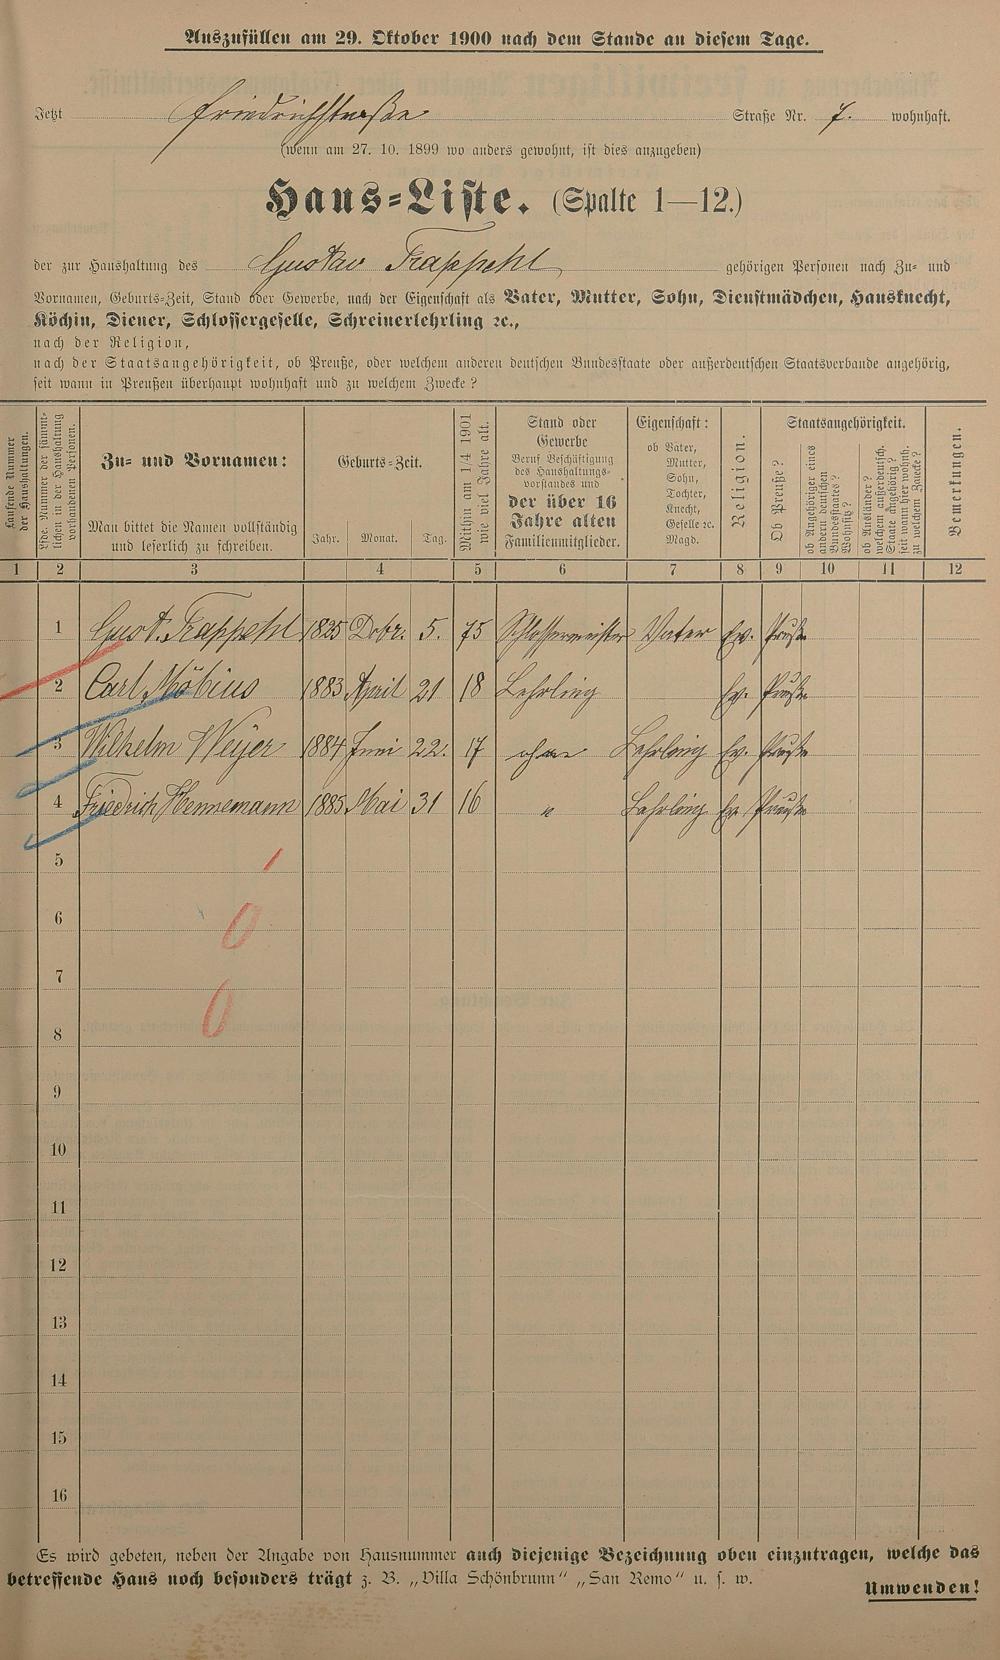 Auszufüllen am 29. Oktober 1900 nach dem Stande an diesem Tage.
Jetzt Friedrichstraße Straße Nr. 7. wohnhaft.
(wenn am 27. 10. 1899 wo anders gewohnt, ist dies anzugeben)
Haus=Liste. (Spalte 1—12.)
der zur Haushaltung des Gustav Trappehl gehörigen Personen nach Zu- und
Vornamen, Geburts-Zeit, Stand oder Gewerbe, nach der Eigenschaft als Vater, Mutter, Sohn, Dienstmädchen, Hausknecht,
Köchin, Diener, Schlossergeselle, Schreinerlehrling ꝛc.,
nach der Religion,
nach der Staatsangehörigkeit, ob Preuße, oder welchem anderen deutschen Bundesstaate oder außerdeutschen Staatsverbande angehörig,
seit wann in Preußen überhaupt wohnhaft und zu welchem Zwecke?
Laufende Nummer
der Haushaltungen.
Lfde. Nummer der sämmt-
lichen in der Haushaltung
vorhandenen Personen.
Zu- und Vornamen:
Man bittet die Namen vollständig
und leserlich zu schreiben.
Geburts-Zeit.
Jahr. Monat. Tag.
Mithin am 1/4 1901
wie viel Jahre alt.
Stand oder
Gewerbe
Beruf Beschäftigung
des Haushaltungs-
vorstandes und
der über 16
Jahre alten
Familienmitglieder.
Eigenschaft:
ob Vater,
Mutter,
Sohn,
Tochter,
Knecht,
Geselle ꝛc.
Magd.
Religion.
Staatsangehörigkeit.
Ob Preuße?
ob Angehöriger eines
andern deutschen
Bundesstaates?
Wohnsitz?
ob Ausländer?
welchem außerdeutsch.
Staate angehörig?
seit wann hier wohnh.
zu welchem Zwecke?
Bemerkungen.
1 2 3 4 5 6 7 8 9 10 11 12
1 Gust. Trappehl 1825 Dobr. 5. 75 Schlossermeister Vater Ev. Preuße
2 Carl Möbius 1883 April 21 18 Lehrling Ev. Preuße
3 Wilhelm Weijer 1884 Juni 22. 17 ohne Lehrling Ev. Preuße
4 Friedrich Hennemann 1885 Mai 31 16 " Lehrling Ev. Preuße
5
6
7
8
9
10
11
12
13
14
15
16
Es wird gebeten, neben der Angabe von Hausnummer auch diejenige Bezeichnung oben einzutragen, welche das
betreffende Haus noch besonders trägt z. B. „Villa Schönbrunn" „San Remo" u. s. w.
Umwenden!